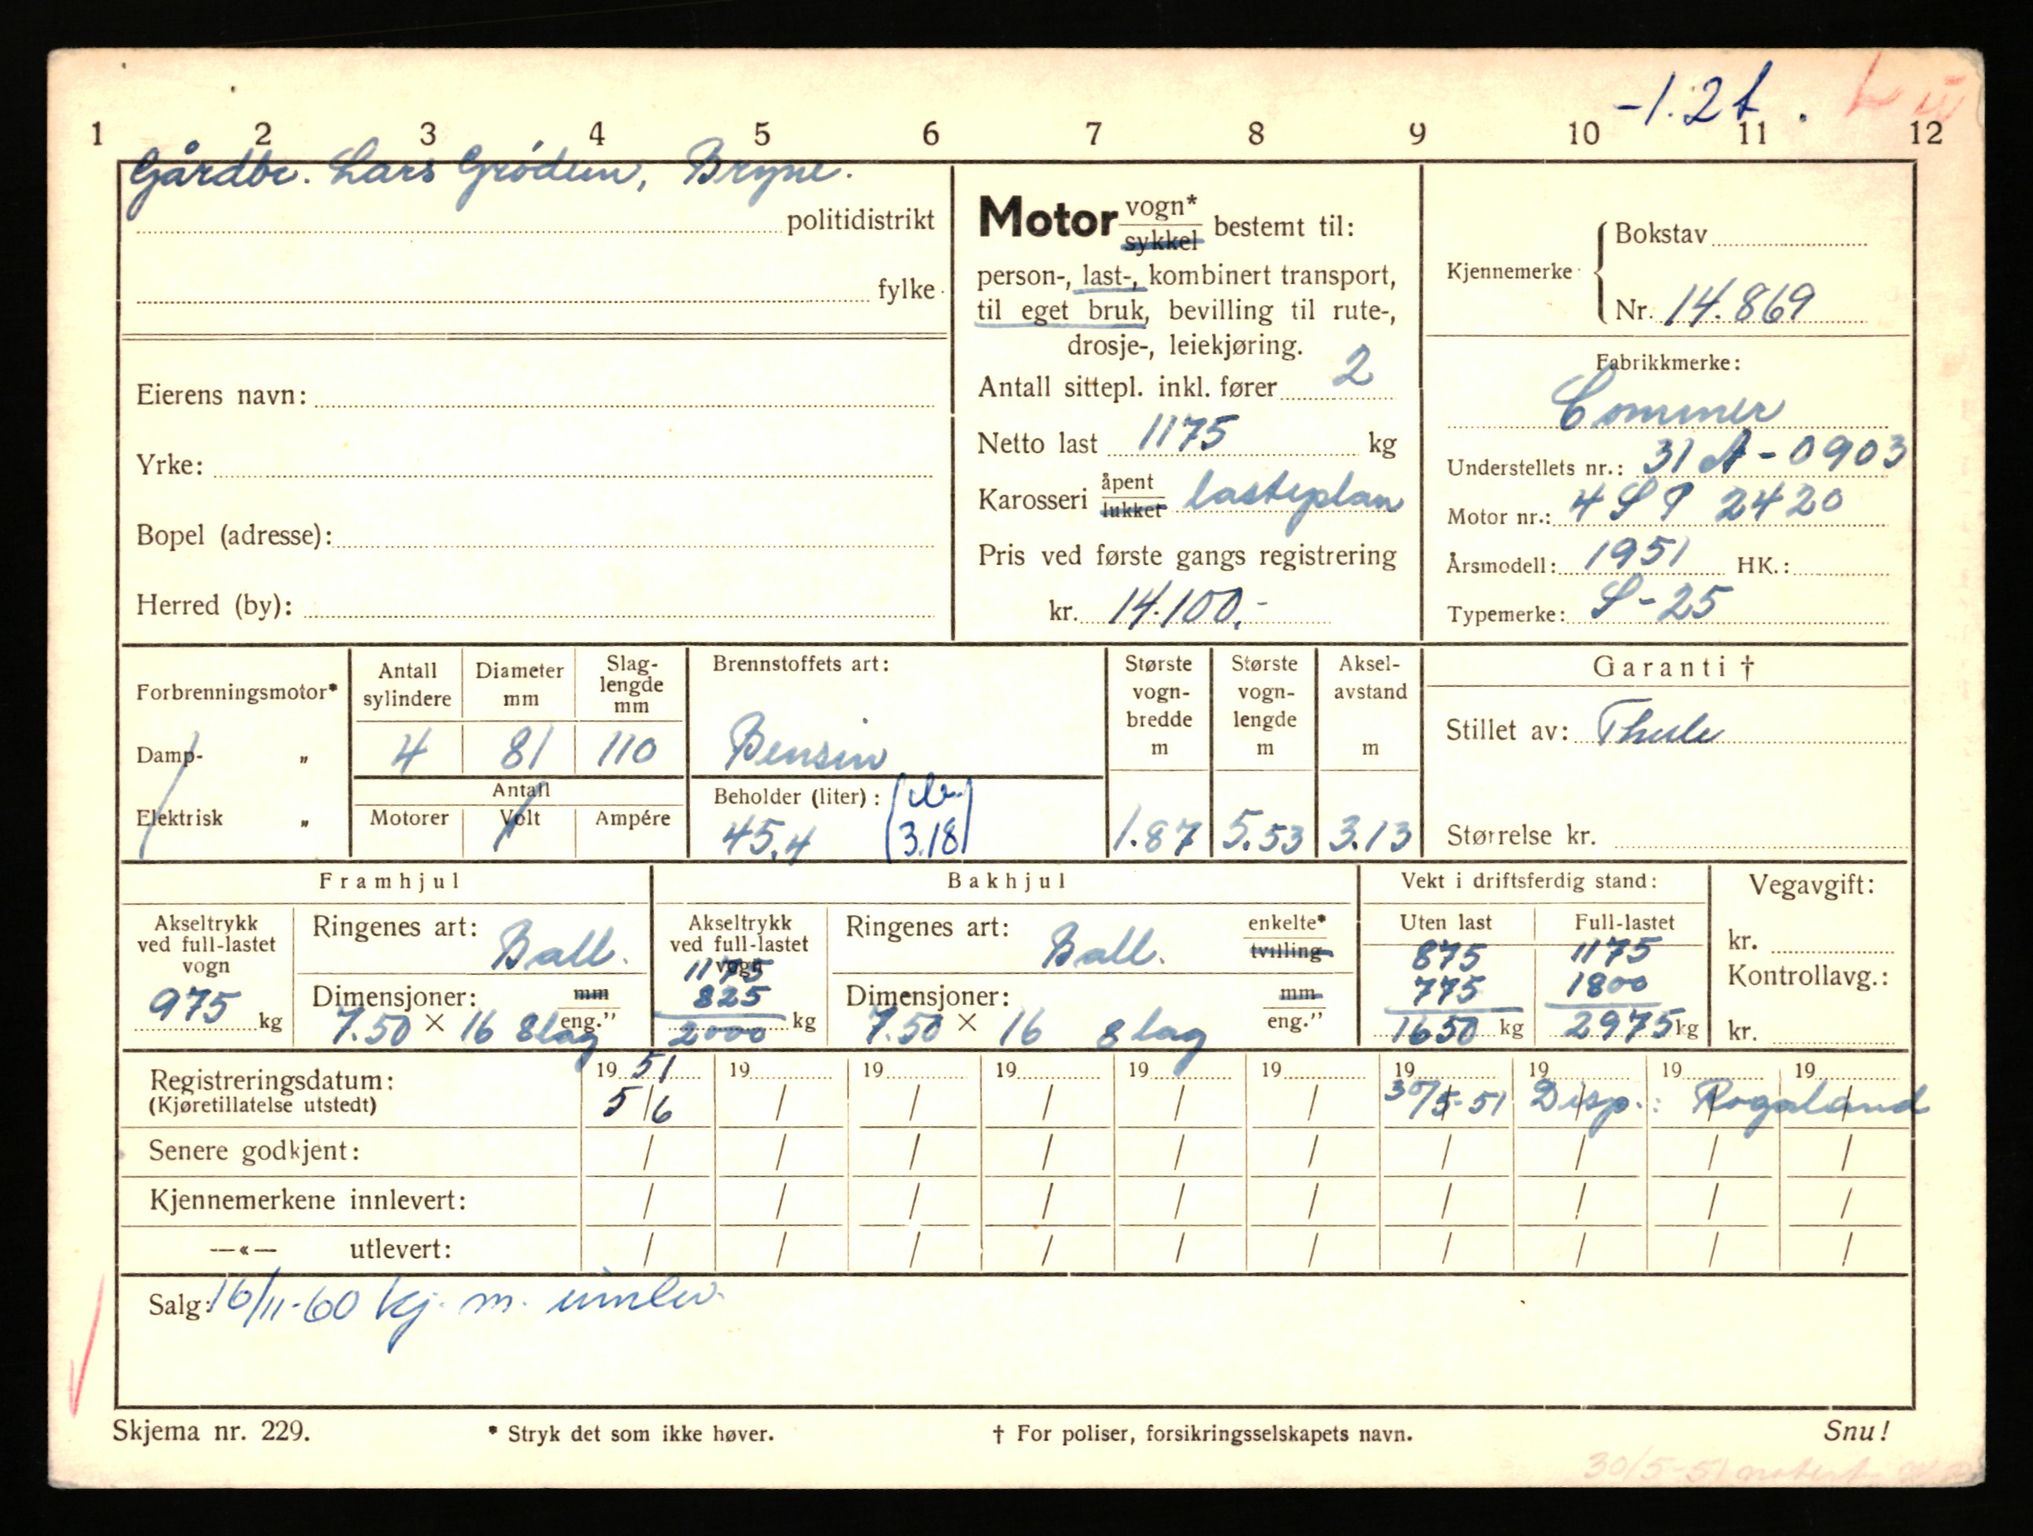 -1.2t.
1 2 3 4 5 6 7 8 9 10 11 12
Gårdbr. Lars Grödem, Bryne.
politidistrikt
fylke
Eierens navn:
Yrke:
Bopel (adresse):
Herred (by):
Motor vogn* sykkel bestemt til:
person-, last-, kombinert transport,
til eget bruk, bevilling til rute-,
drosje-, leiekjøring.
Antall sittepl. inkl. fører 2
Netto last 1175 kg
Karosseri åpent lukket lasteplan
Pris ved første gangs registrering
kr. 14.100.-
Kjennemerke
Bokstav
Nr. 14.869
Fabrikkmerke:
Commer
Understellets nr.: 31 A - 0903
Motor nr.: 4 S P 2420
Årsmodell: 1951 HK.:
Typemerke: S-25
Forbrenningsmotor*
Damp- „
Elektrisk „
Antall sylindere Diameter mm Slag-lengde mm
4 81 110
Antall
Motorer Volt Ampére
Brennstoffets art:
Bensin
Beholder (liter):
45,4 3.18
Største vogn-bredde m
1.87
Største vogn-lengde m
5.53
Aksel-avstand m
3.13
Garanti †
Stillet av: Thule
Størrelse kr.
Framhjul
Akseltrykk
ved full-lastet
vogn
975 kg
Ringenes art: Ball.
Dimensjoner: mm eng."
7.50 × 16 8 lag
Bakhjul
Akseltrykk
ved full-lastet
vogn
1175
825
2000 kg
Ringenes art: Ball. enkelte* tvilling
Dimensjoner: mm eng."
7.50 × 16 8 lag
Vekt i driftsferdig stand:
Uten last Full-lastet
875 1175
775 1800
1650 kg 2975 kg
Vegavgift:
kr.
Kontrollavg.:
kr.
Registreringsdatum: 19 51 19 19 19 19 19 19 19 19 19
(Kjøretillatelse utstedt) 5/6 / / / / / 30/5-51 Disp.: Rogaland
Senere godkjent: / / / / / / / / / /
Kjennemerkene innlevert: / / / / / / / / / /
—«— utlevert: / / / / / / / / / /
Salg: 16/11-60 kj. m. innlev.
Skjema nr. 229. * Stryk det som ikke høver. † For poliser, forsikringsselskapets navn. Snu!
30/5-51 notert